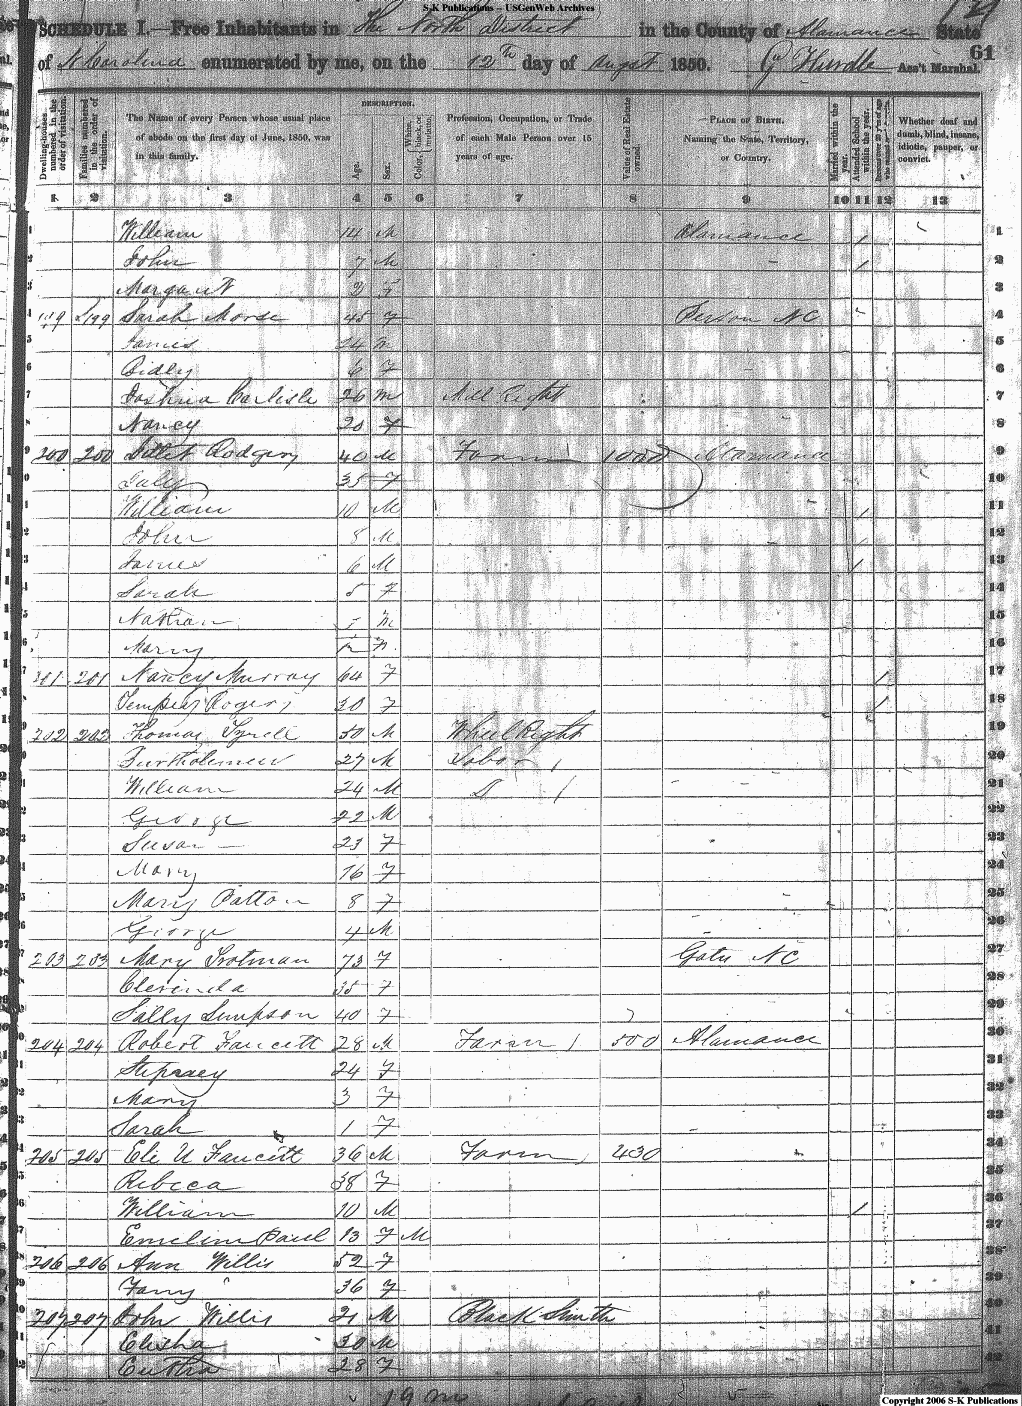 S-K Publications -- USGenWeb Archives
SCHEDULE I.—Free Inhabitants in The North District in the County of Alamance State
of N Carolina enumerated by me, on the 12th day of August 1850. G Hurdle Ass't Marshal. 61
DESCRIPTION.
Dwelling-houses numbered in the order of visitation.
Families numbered in the order of visitation.
The Name of every Person whose usual place of abode on the first day of June, 1850, was in this family.
Age.
Sex.
Color, White, black, or mulatto.
Profession, Occupation, or Trade of each Male Person over 15 years of age.
Value of Real Estate owned.
PLACE OF BIRTH.
Naming the State, Territory, or Country.
Married within the year.
Attended School within the year.
Whether deaf and dumb, blind, insane, idiotic, pauper, or convict.
1 2 3 4 5 6 7 8 9 10 11 12 13
William 14 M Alamance 1 1
John 7 M 1 2
Margaret 2 F 3
199 Sarah Morse 45 F Person NC 4
James 24 M 5
Bidey 6 F 6
Joshua Carlisle 26 M Mill Right 7
Nancy 20 F 8
200 200 Rodgers 40 M Farm 1000 Alamance 9
35 F 10
William 10 M 1 11
John 8 M 12
James 6 M 1 13
Sarah 5 F
Nathan M 15
Mary 16
201 201 Nancy Murray 64 F 1 17
Rogers 30 F 1 18
202 202 Thomas Tyrell 50 M Wheel Right 19
Bartholemew 27 M Labor 1 20
William 24 M D 1 21
George 22 M 22
Susan 23 F 23
Mary 16 F 24
Mary Patton 8 F 25
George 4 M 26
203 203 Mary Trotman 73 F Gates NC 27
Clerinda 35 F 28
Sally Simpson 40 F 29
204 204 Robert Faucett 28 M Farm 1 500 Alamance 30
24 F 31
Mary 3 F 32
Sarah 1 F 33
205 205 Eli U Faucett 36 M Farm 430 34
Rebeca 38 F 35
William 10 M 1 36
Emeline Paul 13 F M 37
206 206 Ann Willis 52 F 38
Fany " 36 F 39
207 207 John Willis 21 M Black Smith 40
Elisha 30 M 41
28 F 42
19 m
Copyright 2006 S-K Publications